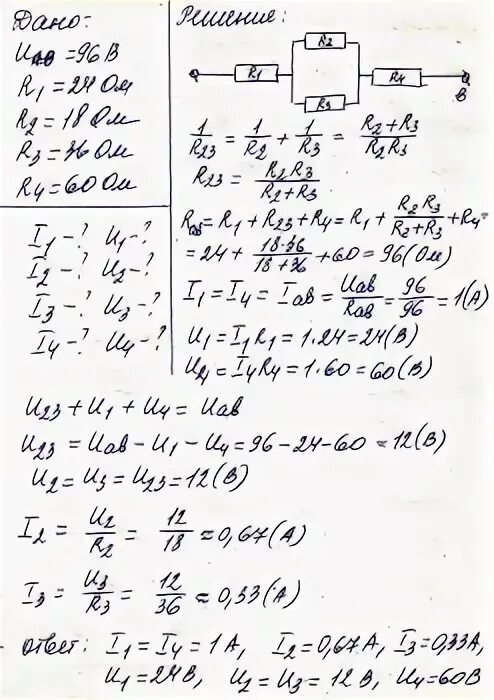 Дано:
UАВ = 96 В
R1 = 24 Ом
R2 = 18 Ом
R3 = 36 Ом
R4 = 60 Ом
I1 - ? U1 - ?
I2 - ? U2 - ?
I3 - ? U3 - ?
I4 - ? U4 - ?
Решение:
R2
R1
R4
R3
В
1/R23 = 1/R2 + 1/R3 = (R2 + R3)/(R2R3)
R23 = R2R3/(R2 + R3)
Rав = R1 + R23 + R4 = R1 + R2R3/(R2 + R3) + R4 =
= 24 + 18·36/(18 + 36) + 60 = 96 (Ом)
I1 = I4 = Iав = Uав/Rав = 96/96 = 1 (А)
U1 = I1R1 = 1·24 = 24 (В)
U4 = I4R4 = 1·60 = 60 (В)
U23 + U1 + U4 = Uав
U23 = Uав - U1 - U4 = 96 - 24 - 60 = 12 (В)
U2 = U3 = U23 = 12 (В)
I2 = U2/R2 = 12/18 ≈ 0,67 (А)
I3 = U3/R3 = 12/36 ≈ 0,33 (А)
ответ: I1 = I4 = 1 А, I2 = 0,67 А, I3 = 0,33 А,
U1 = 24 В, U2 = U3 = 12 В, U4 = 60 В